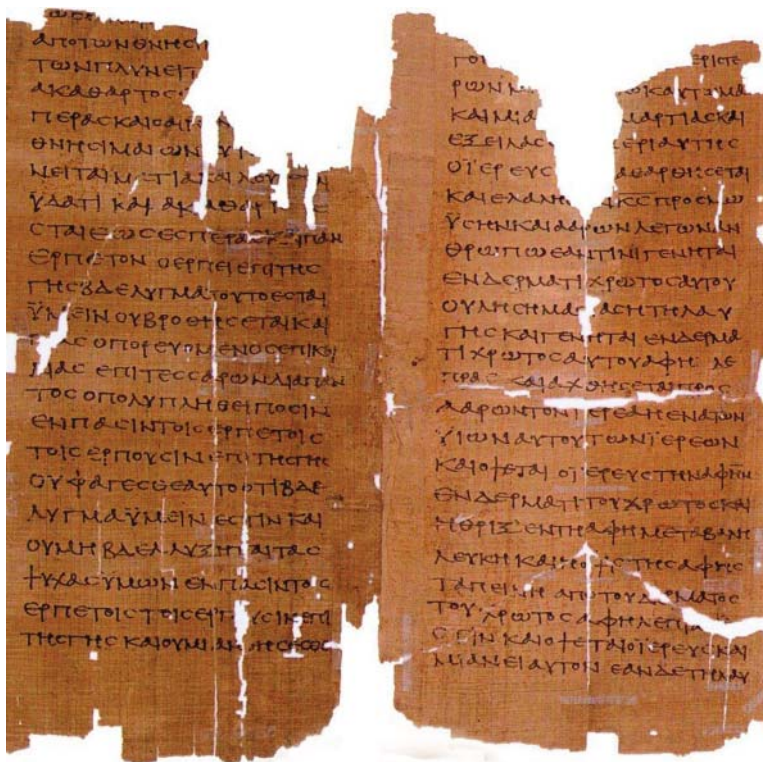 ΑΠΟΤΩΝΘΝΗϹΙ
ΤΩΝΠΛΥΝΕΙΤ
ΑΚΑΘΑΡΤΟϹ
ΠΕΡΑϹΚΑΙΟΑΙΡ
ΘΝΗϹΙΜΑΙΩΝ
ΝΕΙΤΑΙΜΑΤΙΑΚΑΙΛΟΥ
ΫΔΑΤΙΚΑΙΑΚΑΘΑΡΤΟϹΕ
ϹΤΑΙΕΩϹΕϹΠΕΡΑϹΚΑΙΠΑΝ
ΕΡΠΕΤΟΝΟΕΡΠΕΙΕΠΙΤΗϹ
ΓΗϹΒΔΕΛΥΓΜΑΤΟΥΤΟΕϹΤΑΙ
ΫΜΕΙΝΟΥΒΡΩΘΗϹΕΤΑΙΚΑΙ
ΠΑϹΟΠΟΡΕΥΟΜΕΝΟϹΕΠΙΚΟΙ
ΛΙΑϹΕΠΙΤΕϹϹΑΡΩΝΔΙΑΠΑΝ
ΤΟϹΟΠΟΛΥΠΛΗΘΕΙΠΟϹΙΝ
ΕΝΠΑϹΙΝΤΟΙϹΕΡΠΕΤΟΙϹ
ΤΟΙϹΕΡΠΟΥϹΙΝΕΠΙΤΗϹΓΗϹ
ΟΥΦΑΓΕϹΘΕΑΥΤΟΟΤΙΒΔΕ
ΛΥΓΜΑΫΜΕΙΝΕϹΤΙΝΚΑΙ
ΟΥΜΗΒΔΕΛΛΥΞΗΤΑΙΤΑϹ
ΨΥΧΑϹΥΜΩΝΕΝΠΑϹΙΝΤΟΙϹ
ΕΡΠΕΤΟΙϹΤΟΙϹΕΡΠΟΥϹΙΝΕΠΙ
ΤΗϹΓΗϹΚΑΙΟΥΜΙΑΝΘΗϹΕϹΘΕ
ΓΟΙ ΕΡΙϹΤΕ
ΡΩΝΝ ΩΚΑΥΤΩΜΑ
ΚΑΙΜΙΑ ΜΑΡΤΙΑϹΚΑΙ
ΕΞΕΙΛΑϹ ΕΡΙΑΥΤΗϹ
ΟΪΕΡΕΥϹ ΑΘΑΡΘΗϹΕΤΑΙ
ΚΑΙΕΛΑΛΗ ΚϹΠΡΟϹΜΩ
ΫϹΗΝΚΑΙΑΑΡΩΝΛΕΓΩΝΑΝ
ΘΡΩΠΩΕΑΝΤΙΝΙΓΕΝΗΤΑΙ
ΕΝΔΕΡΜΑΤΙΧΡΩΤΟϹΑΥΤΟΥ
ΟΥΛΗϹΗΜΑϹΙΑϹΗΤΗΛΑΥ
ΓΗϹΚΑΙΓΕΝΗΤΑΙΕΝΔΕΡΜΑ
ΤΙΧΡΩΤΟϹΑΥΤΟΥΑΦΗΛΕ
ΠΡΑϹΚΑΙΑΧΘΗϹΕΤΑΙΠΡΟϹ
ΑΑΡΩΝΤΟΝΪΕΡΕΑΗΕΝΑΤΩΝ
ΫΙΩΝΑΥΤΟΥΤΩΝΪΕΡΕΩΝ
ΚΑΙΟΨΕΤΑΙΟΪΕΡΕΥϹΤΗΝΑΦΗΝ
ΕΝΔΕΡΜΑΤΙΤΟΥΧΡΩΤΟϹΚΑΙ
ΗΘΡΙΞΕΝΤΗΑΦΗΜΕΤΑΒΑΛΗ
ΛΕΥΚΗΚΑΙΗΟΨΙϹΤΗϹΑΦΗϹ
ΤΑΠΕΙΝΗΑΠΟΤΟΥΔΕΡΜΑΤΟϹ
ΤΟΥΧΡΩΤΟϹΑΦΗΛΕΠΡΑ
ϹΤΙΝΚΑΙΟΨΕΤΑΙΟΪΕΡΕΥϹΚΑΙ
ΜΙΑΝΕΙΑΥΤΟΝΕΑΝΔΕΤΗΛΑΥ